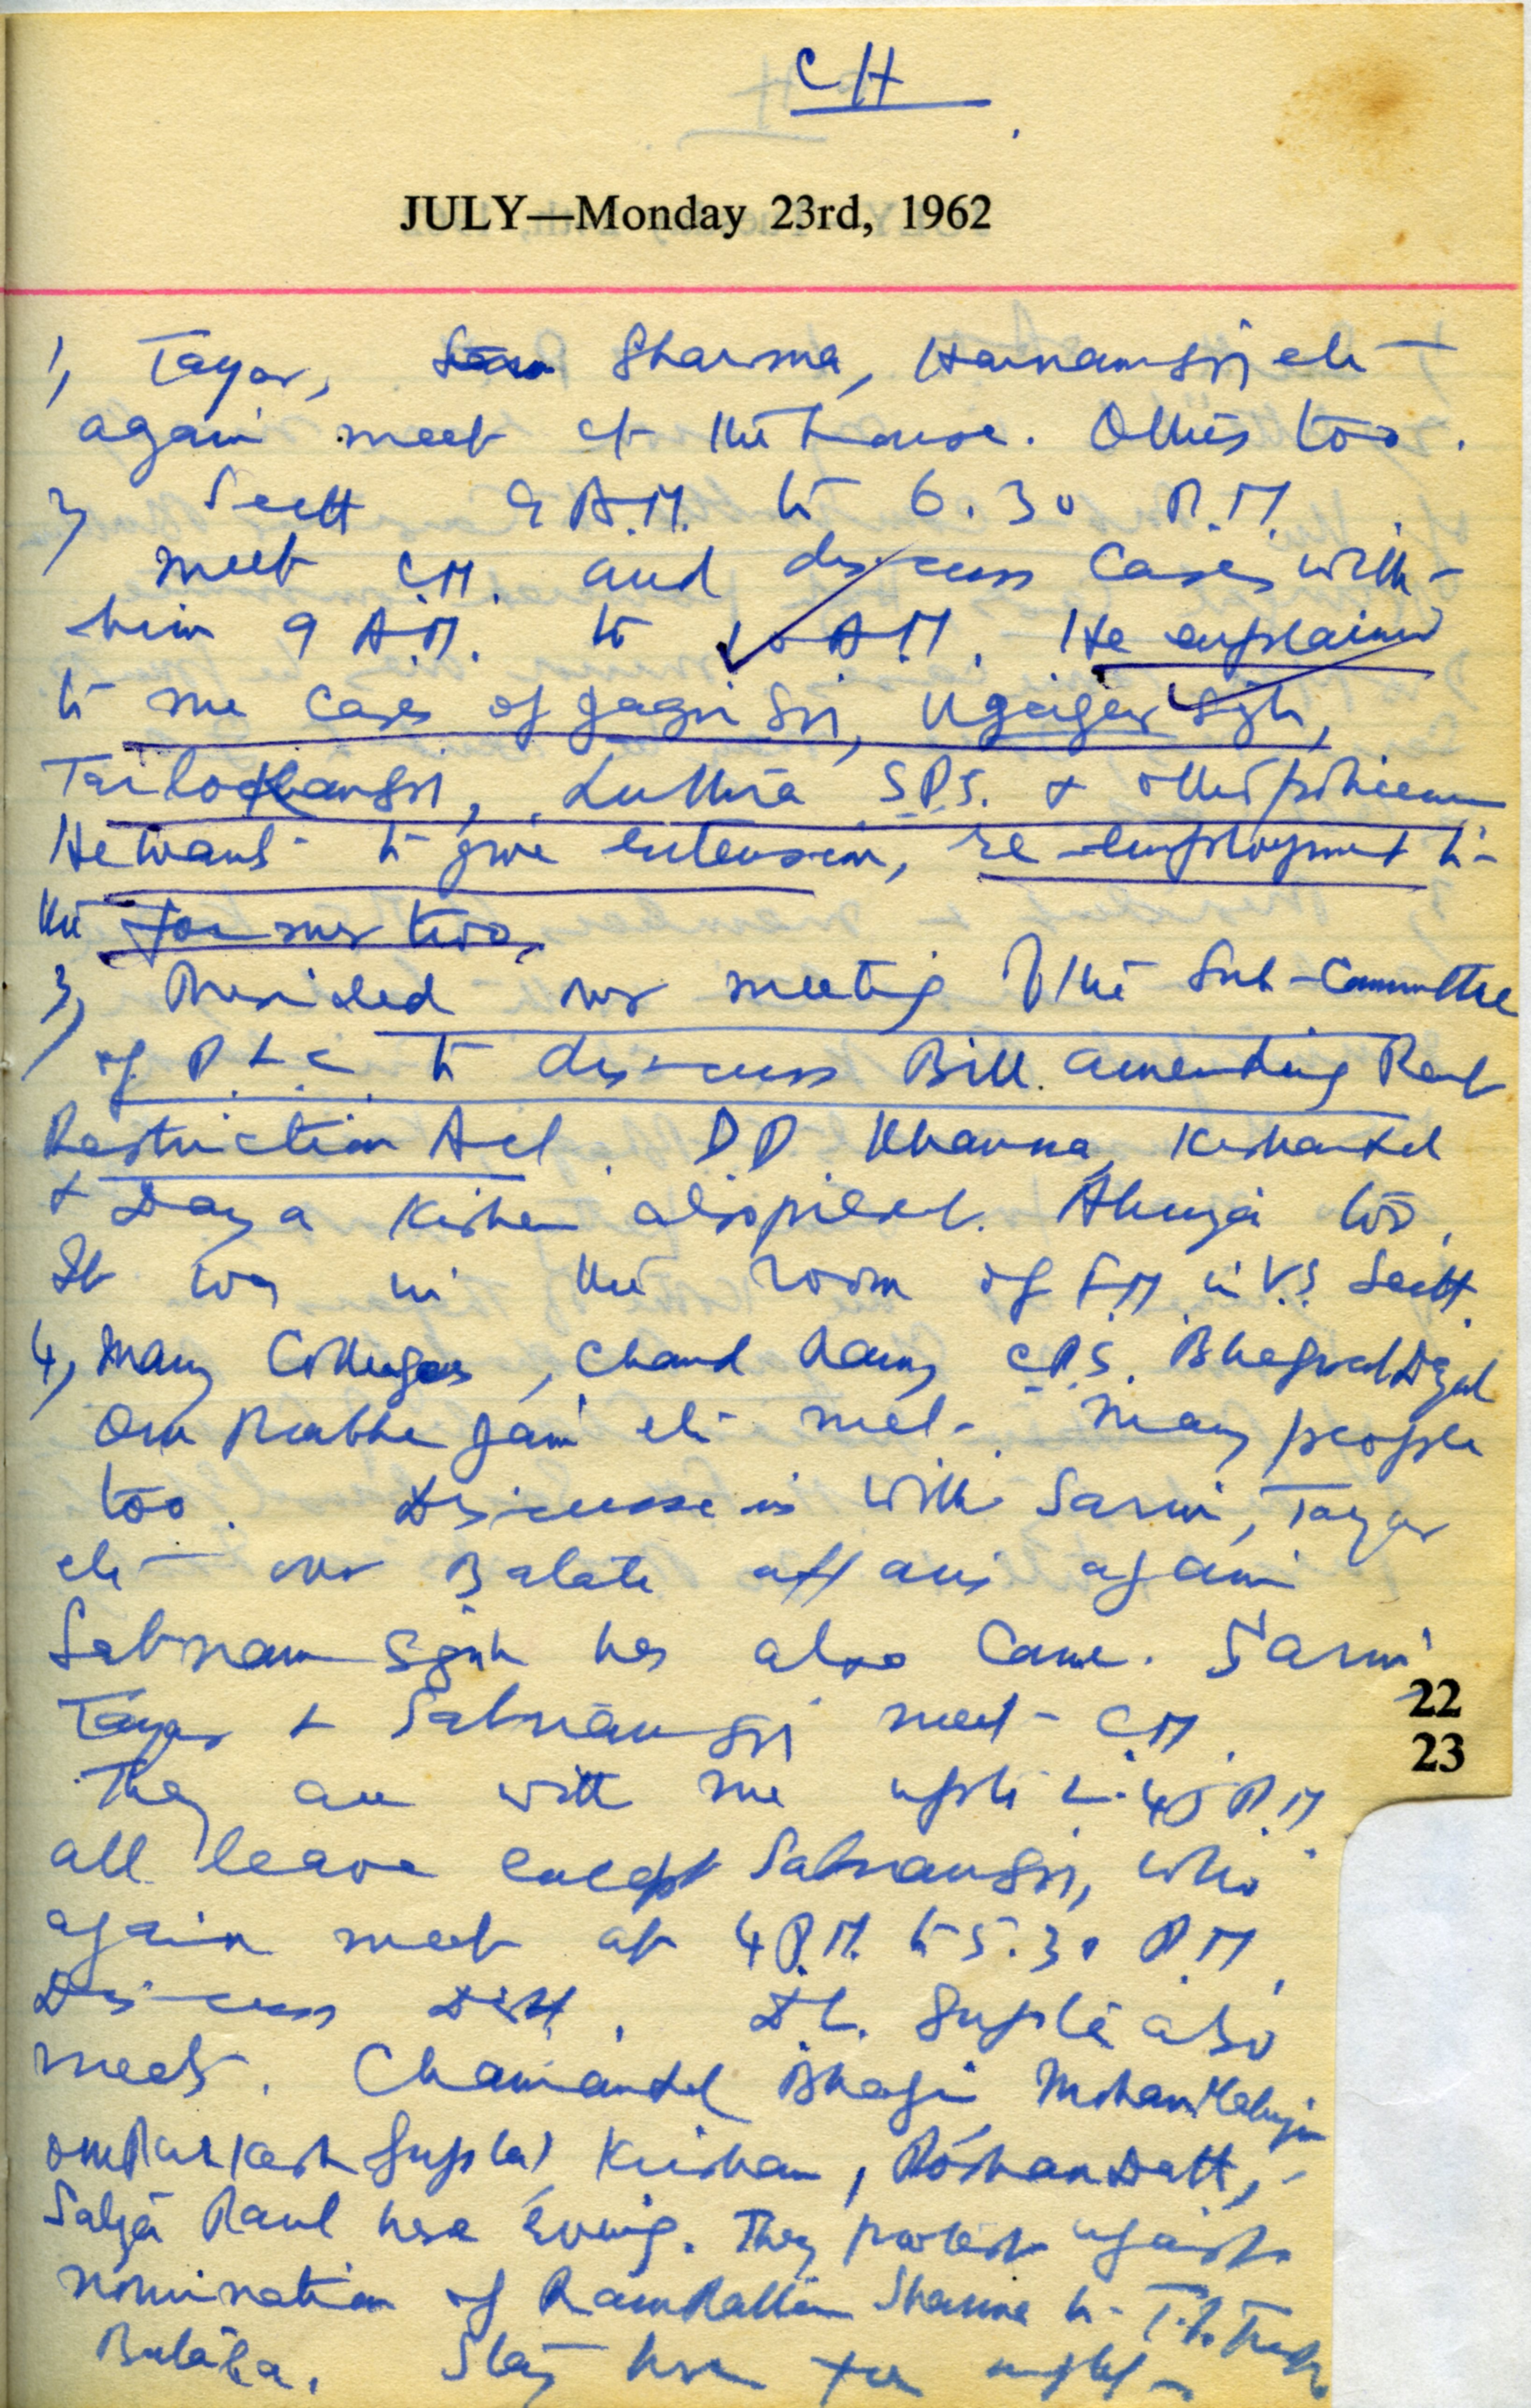 CH
JULY—Monday 23rd, 1962
1, Tayar, Sharma, Harnamsgn etc
again meet at the house. Others too.
2, Sectt 9 A.M. to 6.30 P.M.
meet C.M. and discuss cases with
him 9 A.M. to 10 A.M. He explained
to me cases of Jagir Sgn, Ujagar Sgh,
Tarlochansgn, Luthra S.P.S. & other policemen
He wants to give extension, re-employment to
the former two.
3, Presided over meeting of the Sub-Committee
of P.L.C. to discuss Bill amending Rent
Restriction Act. D.D. Khanna, Kishanlal
& Daya Kishen also present. Ahuja too.
It was in the room of F.M. in V.S. Sectt.
4, Many Colleagues, Chand Ram, C.P.S. Bhagwat Dyal
Om Prabha Jain etc met. Many people
too. Discussions with Sarin, Tayar
etc over Batala affairs again
Satnam Singh has also come. Sarin
Tayar & Satnamsgn meet C.M.
They are with me upto 2.45 P.M.
all leave except Satnamsgn, who
again meet at 4 P.M. to 5.30 P.M.
Discuss Distt. D.C. Gupta also
meets. Chamanlal Bhagi
Om Parkash Gupta, Krishan, Roshan Datt,
Satya Paul here Evening. They protest against
nomination of Ram Rattan Sharma to I.T.
Batala. Stay here for night
22
23